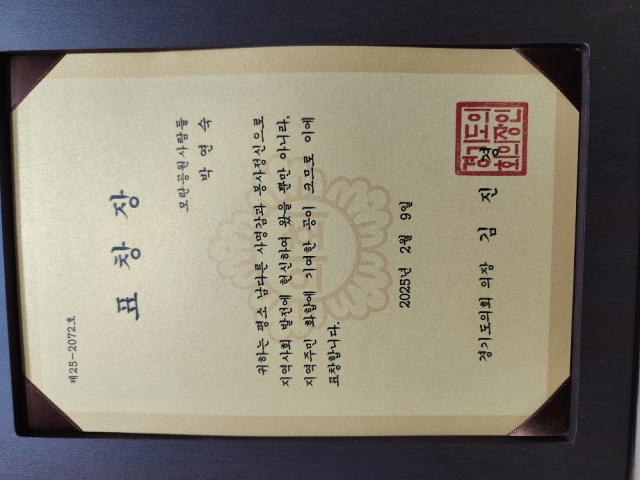 제25-2072호
표 창 장
모란공원사람들
박 연 숙
귀하는 평소 남다른 사명감과 봉사정신으로
지역사회 발전에 헌신하여 왔을 뿐만 아니라,
지역주민 화합에 기여한 공이 크므로 이에
표창합니다.
2025년 2월 9일
경기도의회 의장 김 진 경
경기도의
회의장인